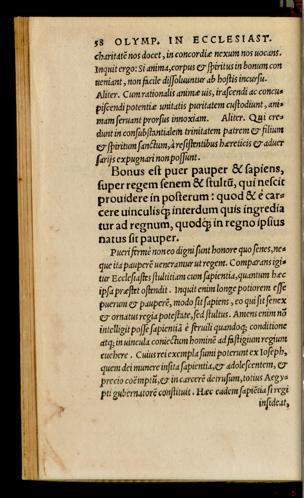 58 OLYMP. IN ECCLESIAST.
charitatē nos docet, in concordiæ nexum nos uocans.
Inquit ergo: Si anima, corpus & spiritus in bonum con
ueniant, non facile dissoluuntur ab hostis incursu.
Aliter. Cum rationalis animæ uis, irascendi ac concu-
piscendi potentiæ unitatis puritatem custodiunt, ani-
mam seruant prorsus innoxiam. Aliter. Qui cre-
dunt in consubstantialem trinitatem patrem & filium
& spiritum sanctum, à resistentibus hæreticis & aduer
sarijs expugnari non possunt.
Bonus est puer pauper & sapiens,
super regem senem & stultū, qui nescit
prouidere in posterum: quod & è car-
cere uinculisq; interdum quis ingredia
tur ad regnum, quodq; in regno ipsius
natus sit pauper.
Pueri fermè non eo digni sunt honore quo senes, ne-
que ita pauperē ueneramur ut regem. Comparans igi-
tur Ecclesiastes stultitiam cum sapientia, quantum hæc
ipsa præstet ostendit. Inquit enim longe potiorem esse
puerum & pauperē, modo sit sapiens, eo qui sit senex
& ornatus regia potestate, sed stultus. Amens enim nō
intelligit posse sapientiā è seruili quandoq; conditione
atq; in uincula coniectum hominē ad fastigium regium
euehere. Cuius rei exempla sumi poterunt ex Ioseph,
quem dei munere insita sapientia, & adolescentem, &
precio coëmptū, & in carcerē detrusum, totius Aegy-
pti gubernatorē constituit. Hæc eadem sapiētia si regi
insideat,